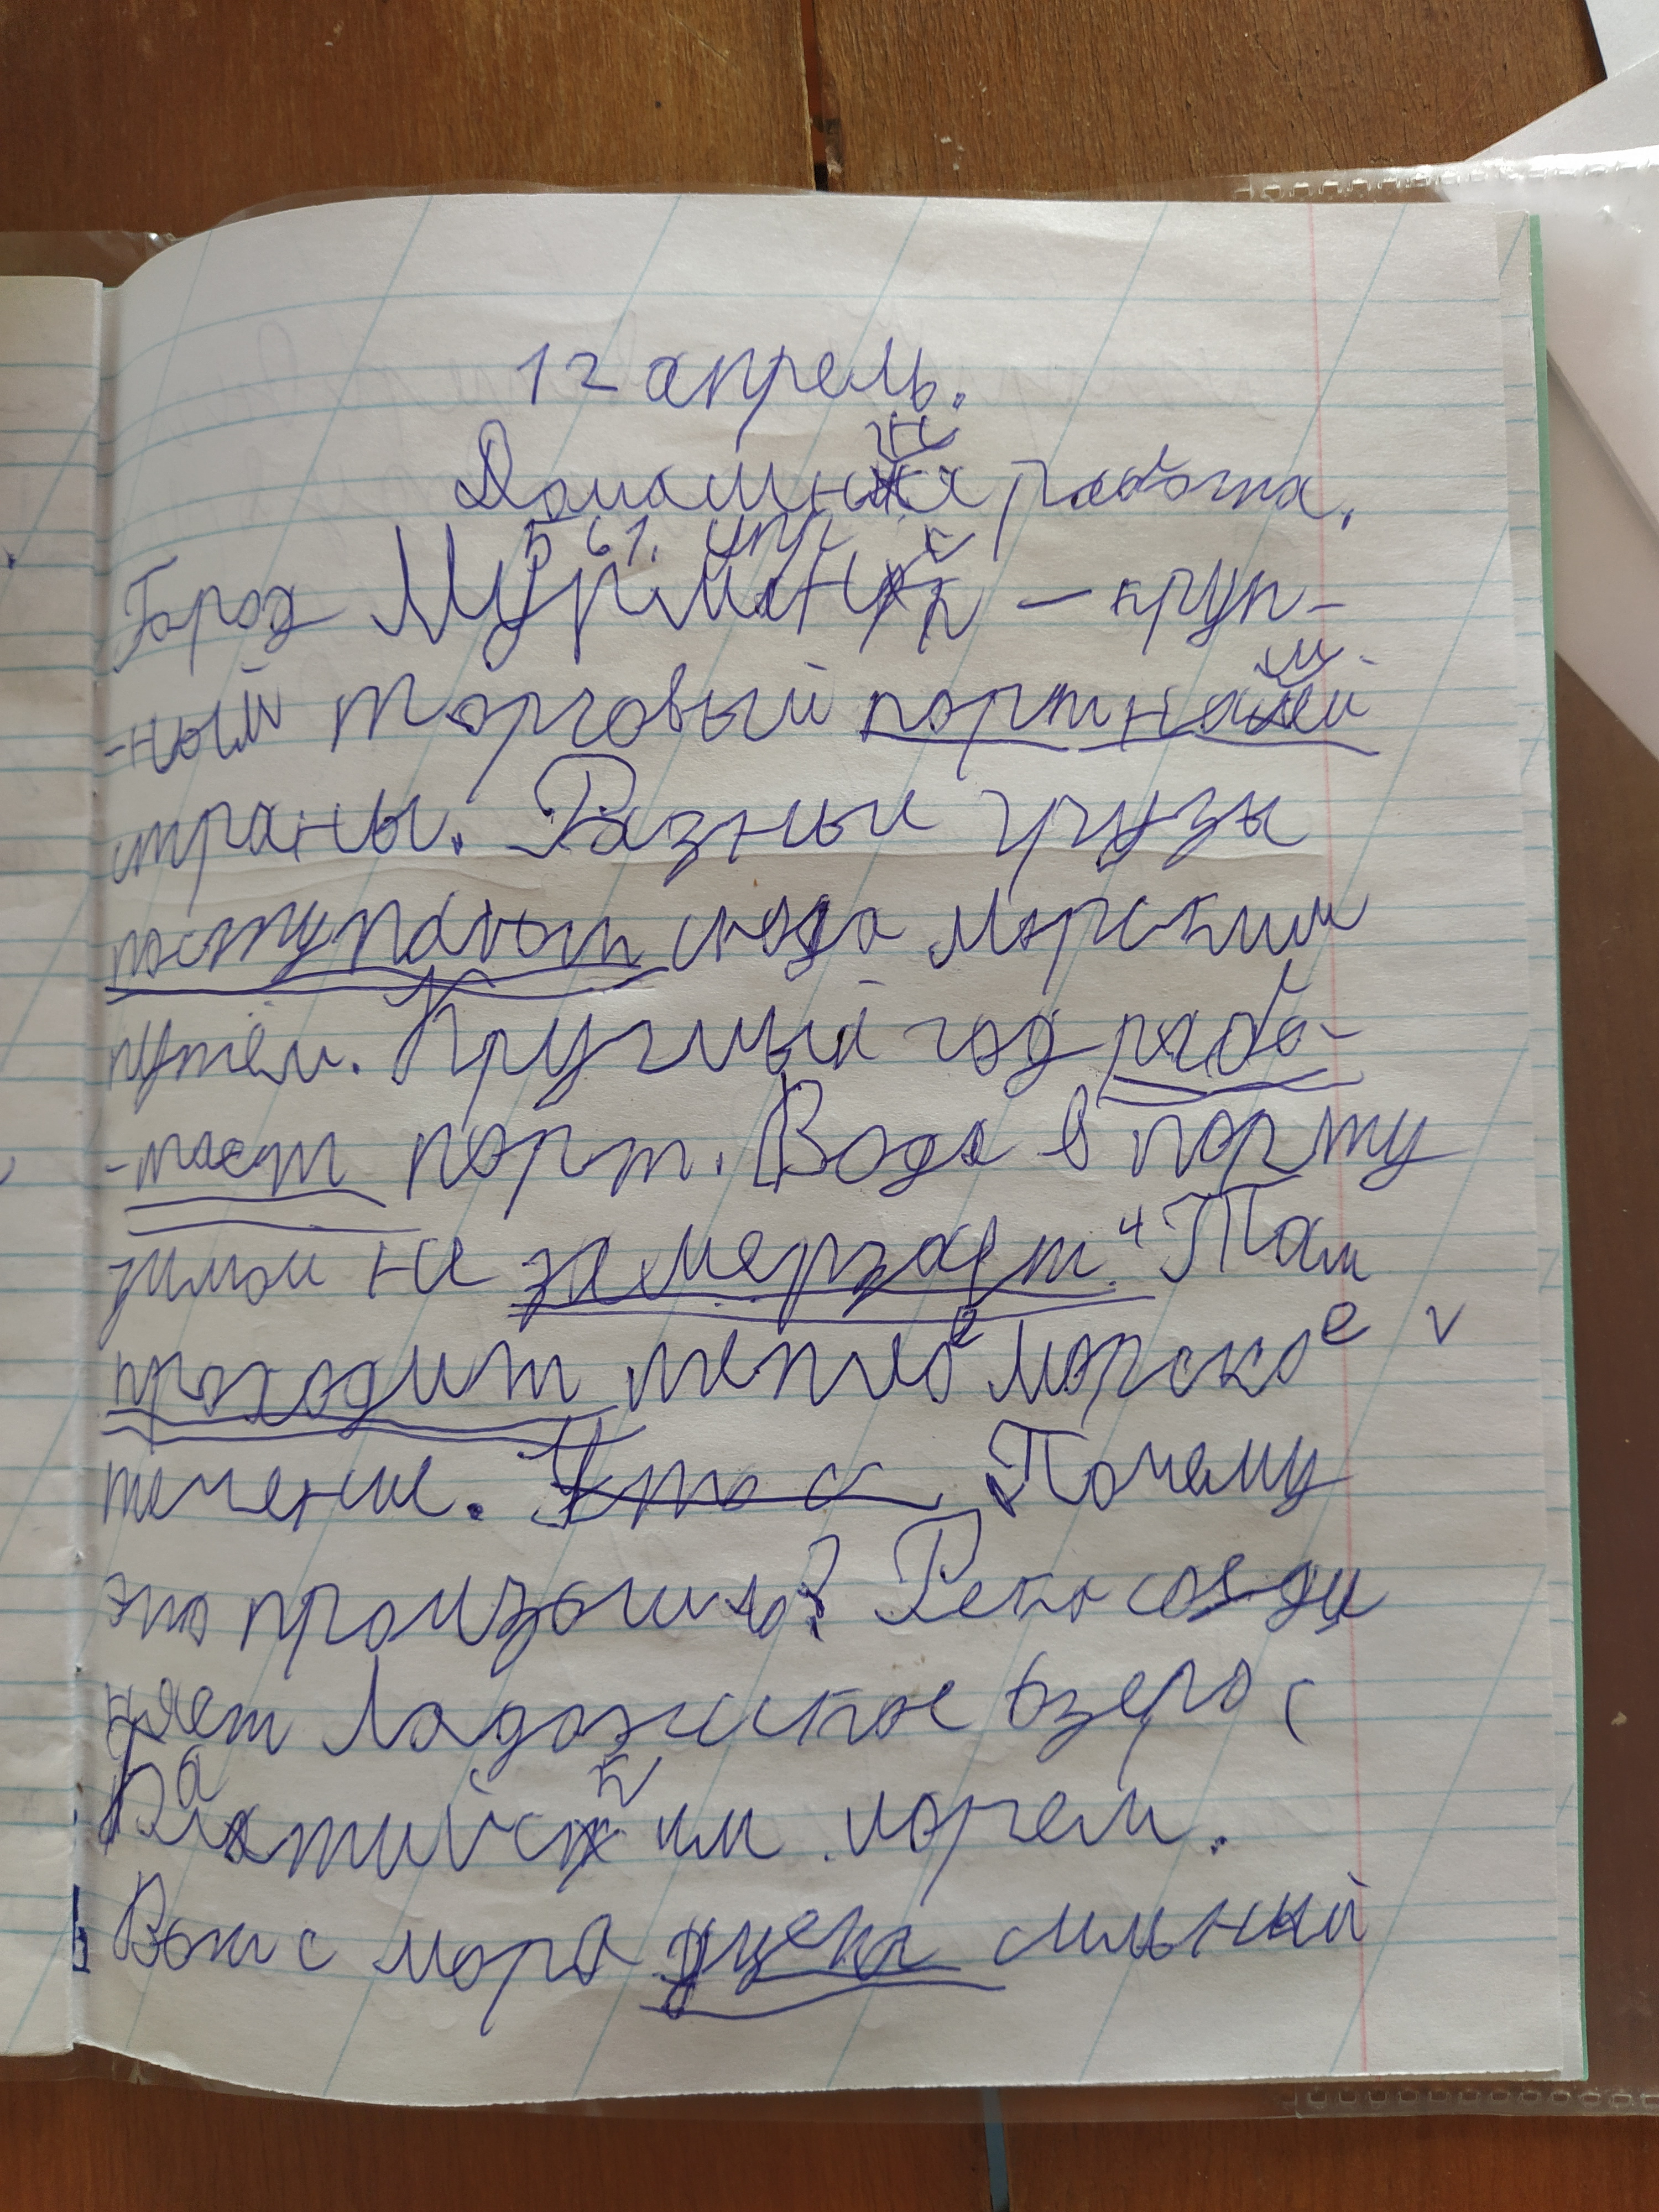 12 апрель.
Домашняя работа.
561. упр
Город Мурманск – круп-
-ный торговый порт нашей
страны. Разные грузы
поступают сюда морским
путём. Круглый год рабо-
-тает порт. Вода в порту
зимой не замерзает. Там
проходит теплое морское
течение. Почему
это произошло? Река соеди
няет Ладожское озеро с
Балтийским морем.
Вот с моря сильный